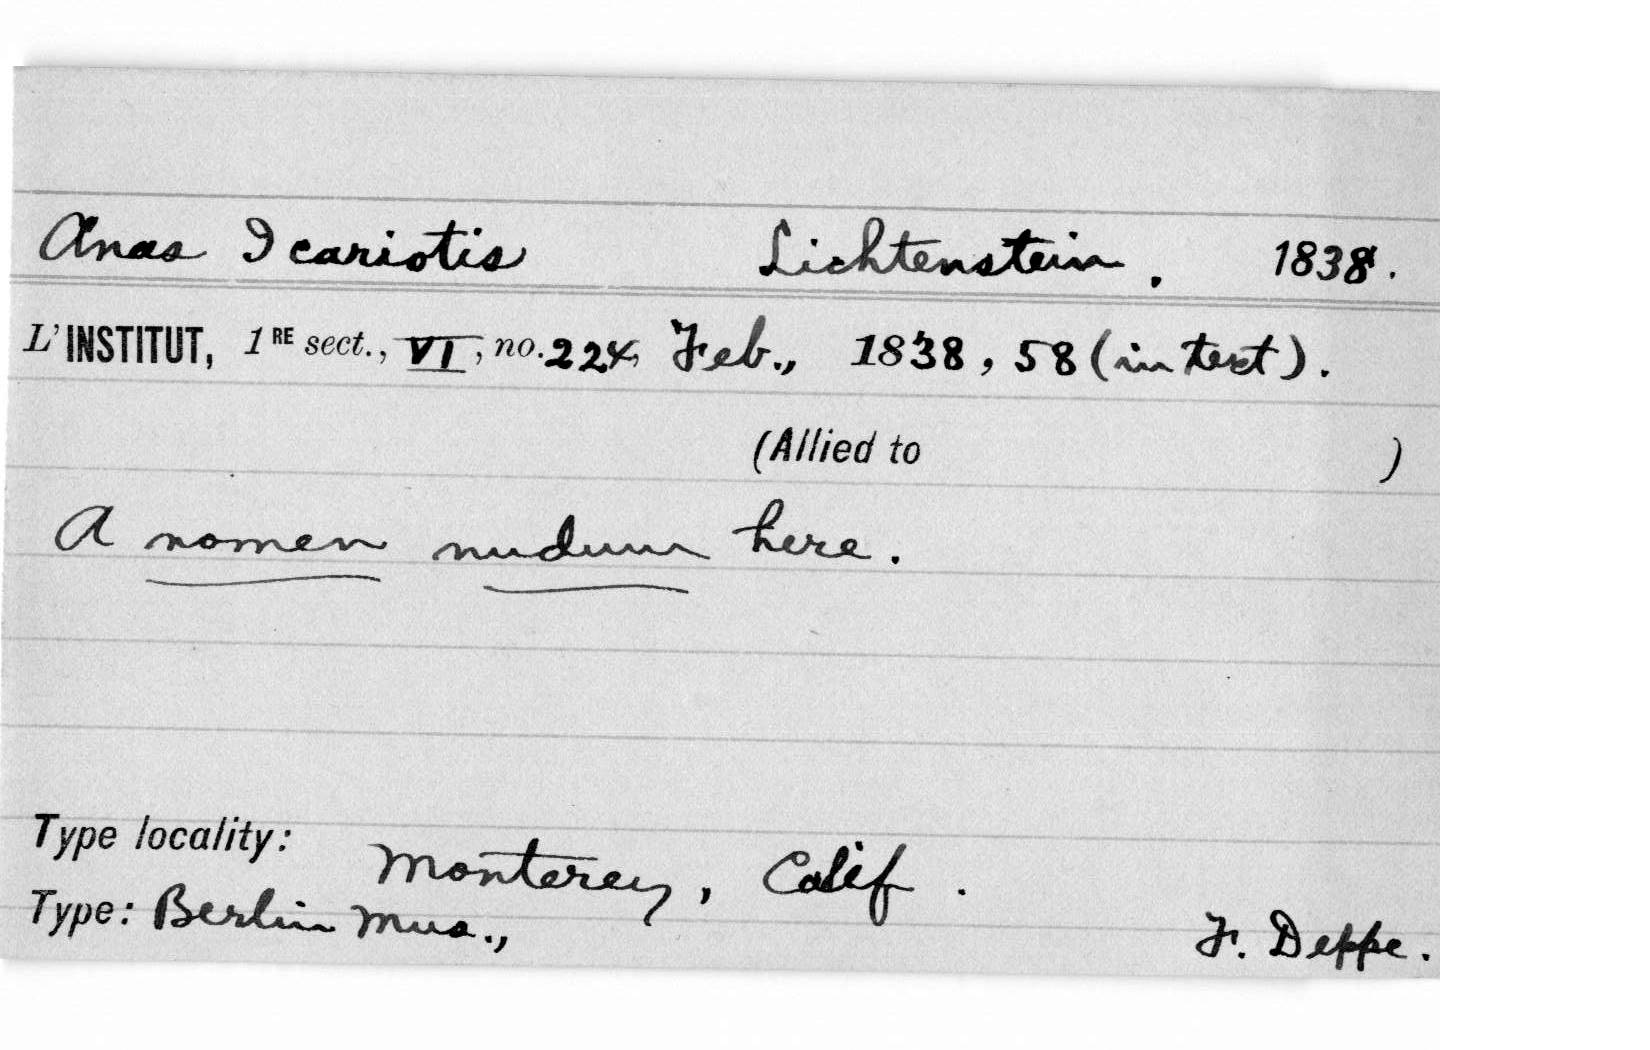 Anas Icariotis Lichtenstein, 1838.
L'INSTITUT, 1RE sect., VI, no. 224, Feb., 1838, 58 (in text).
(Allied to )
A nomen nudum here.
Type locality: Monterey, Calif.
Type: Berlin Mus., F. Deppe.